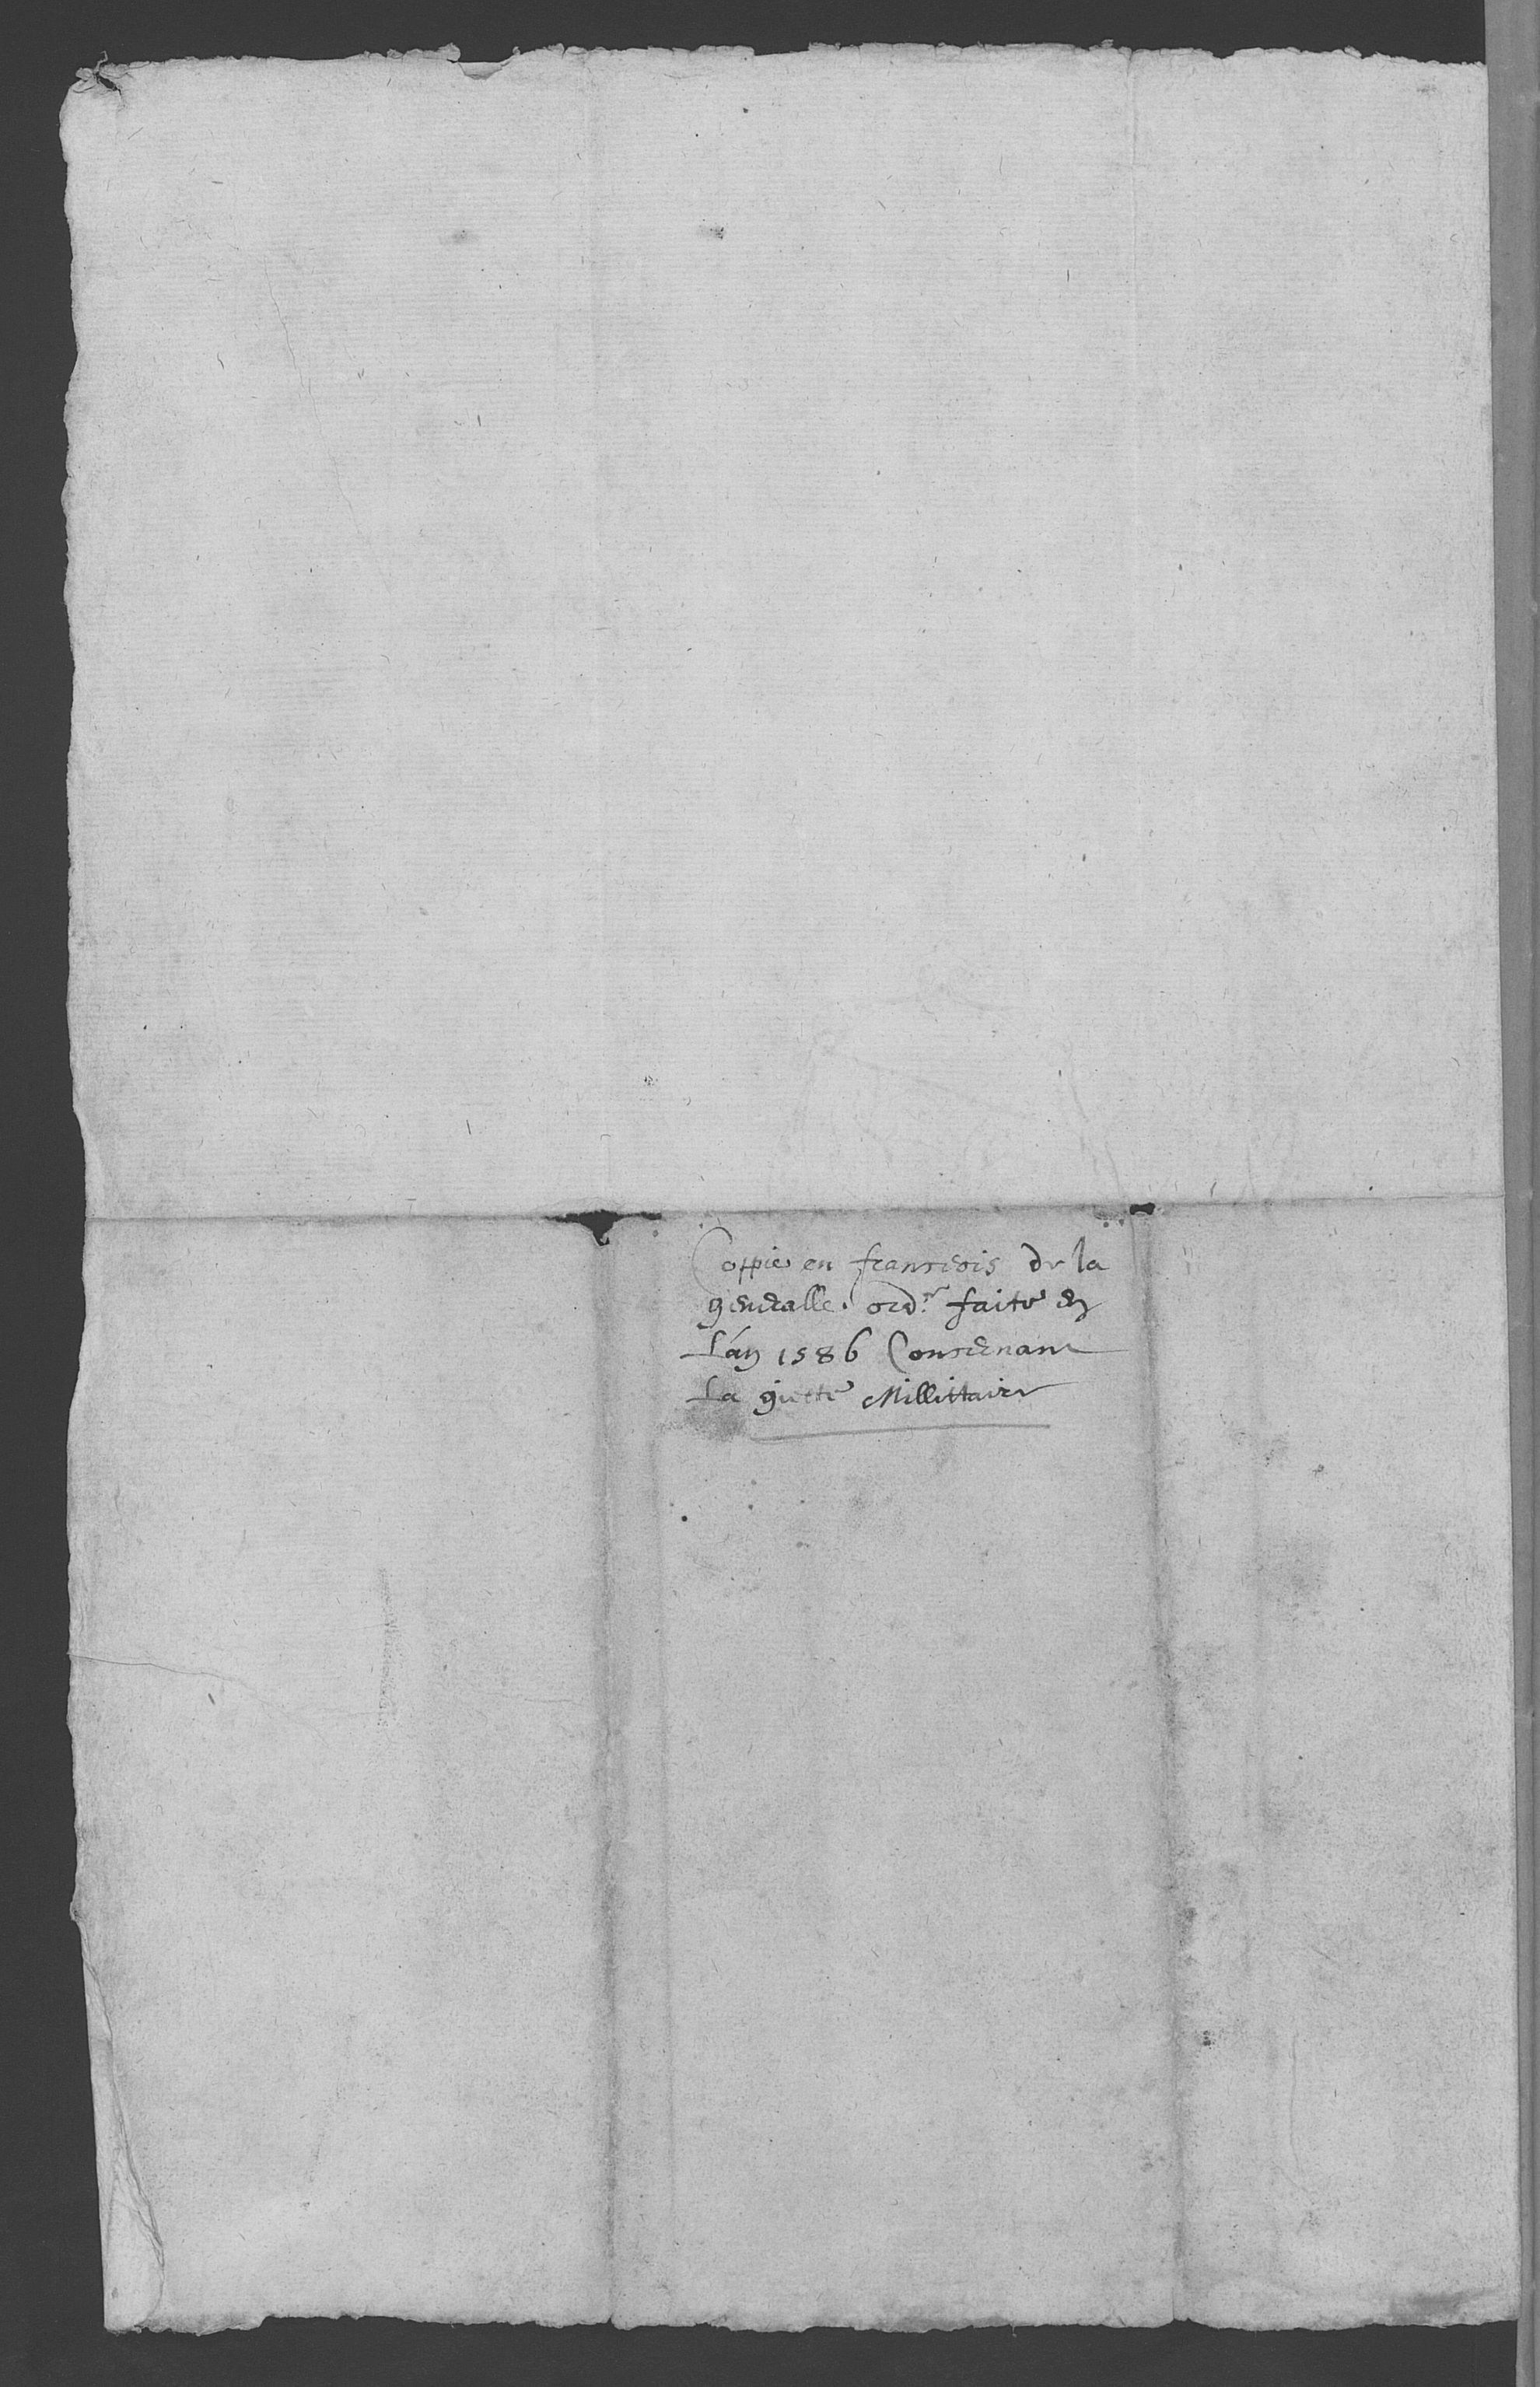 Coppie en franscois de la
generalle ordre faite en
L'an 1586 Conscernant
La guette Millittaire